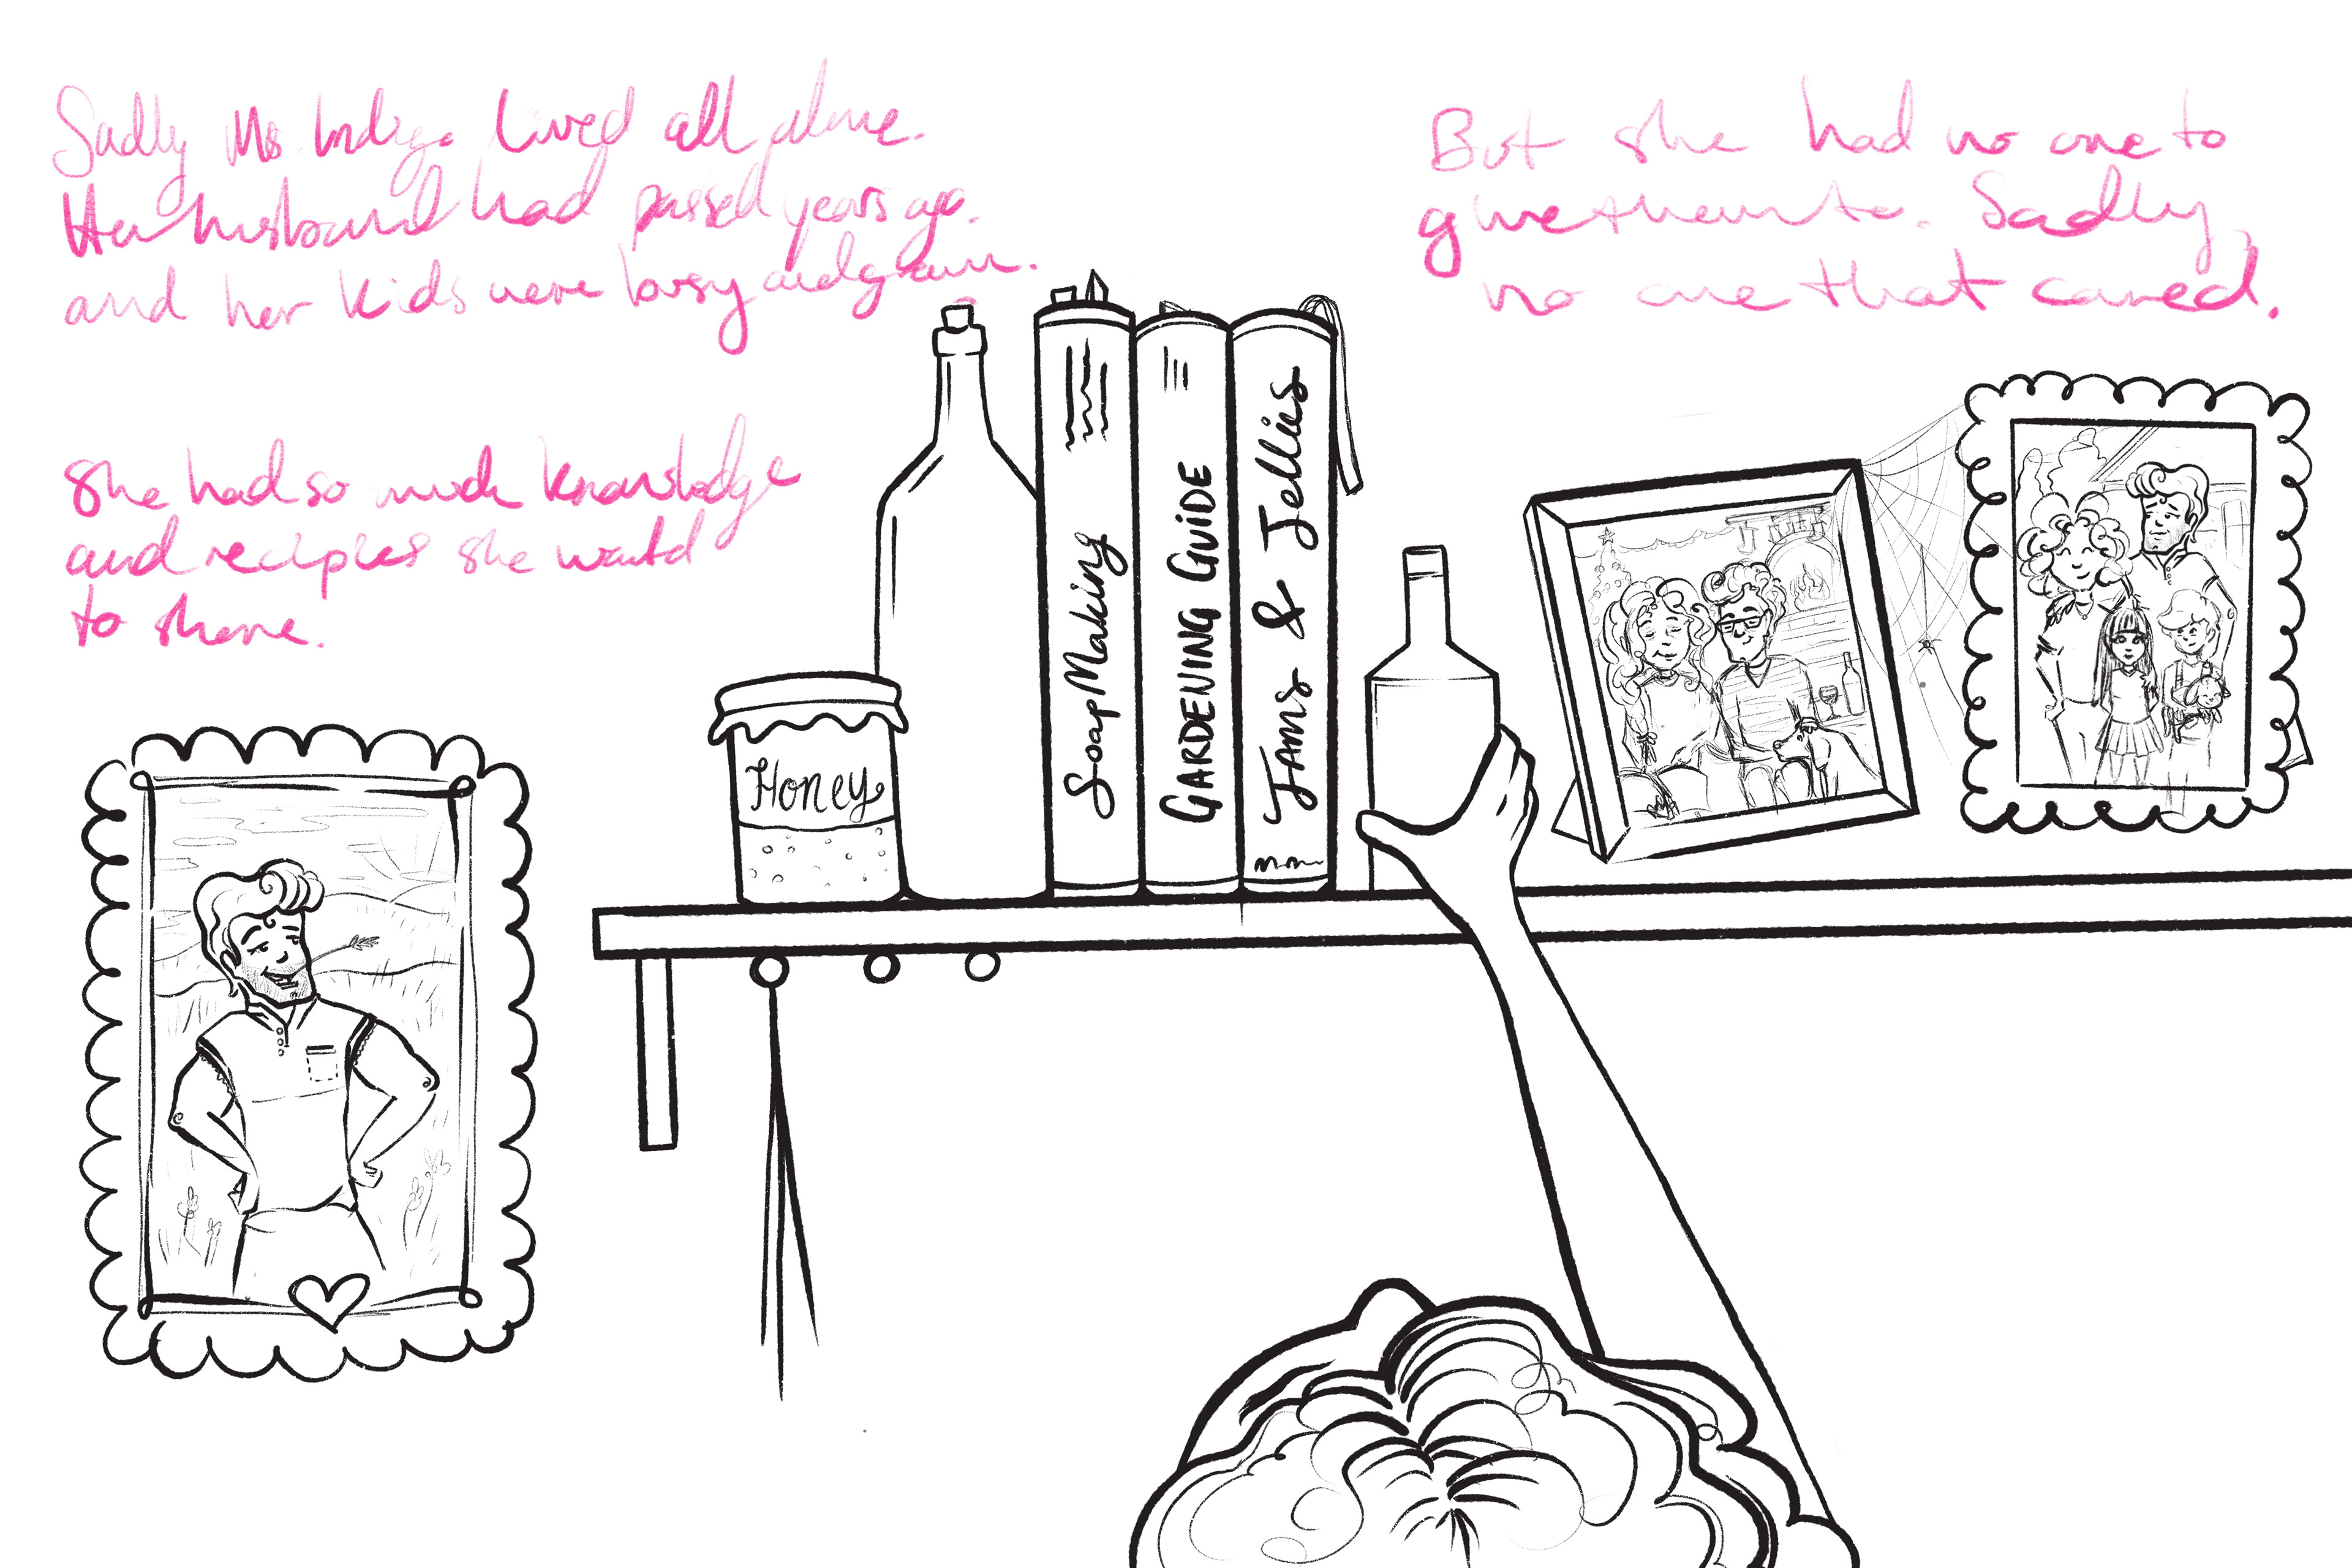 Sadly Ms. Indigo lived all alone.
Her husband had passed years ago.
and her kids were busy and grown.
She had so much knowledge
and recipies she wantd
to share.
But she had no one to
give them to. Sadly,
no one that cared.
Honey
Soap Making
GARDENING GUiDE
JAMS & Jellies